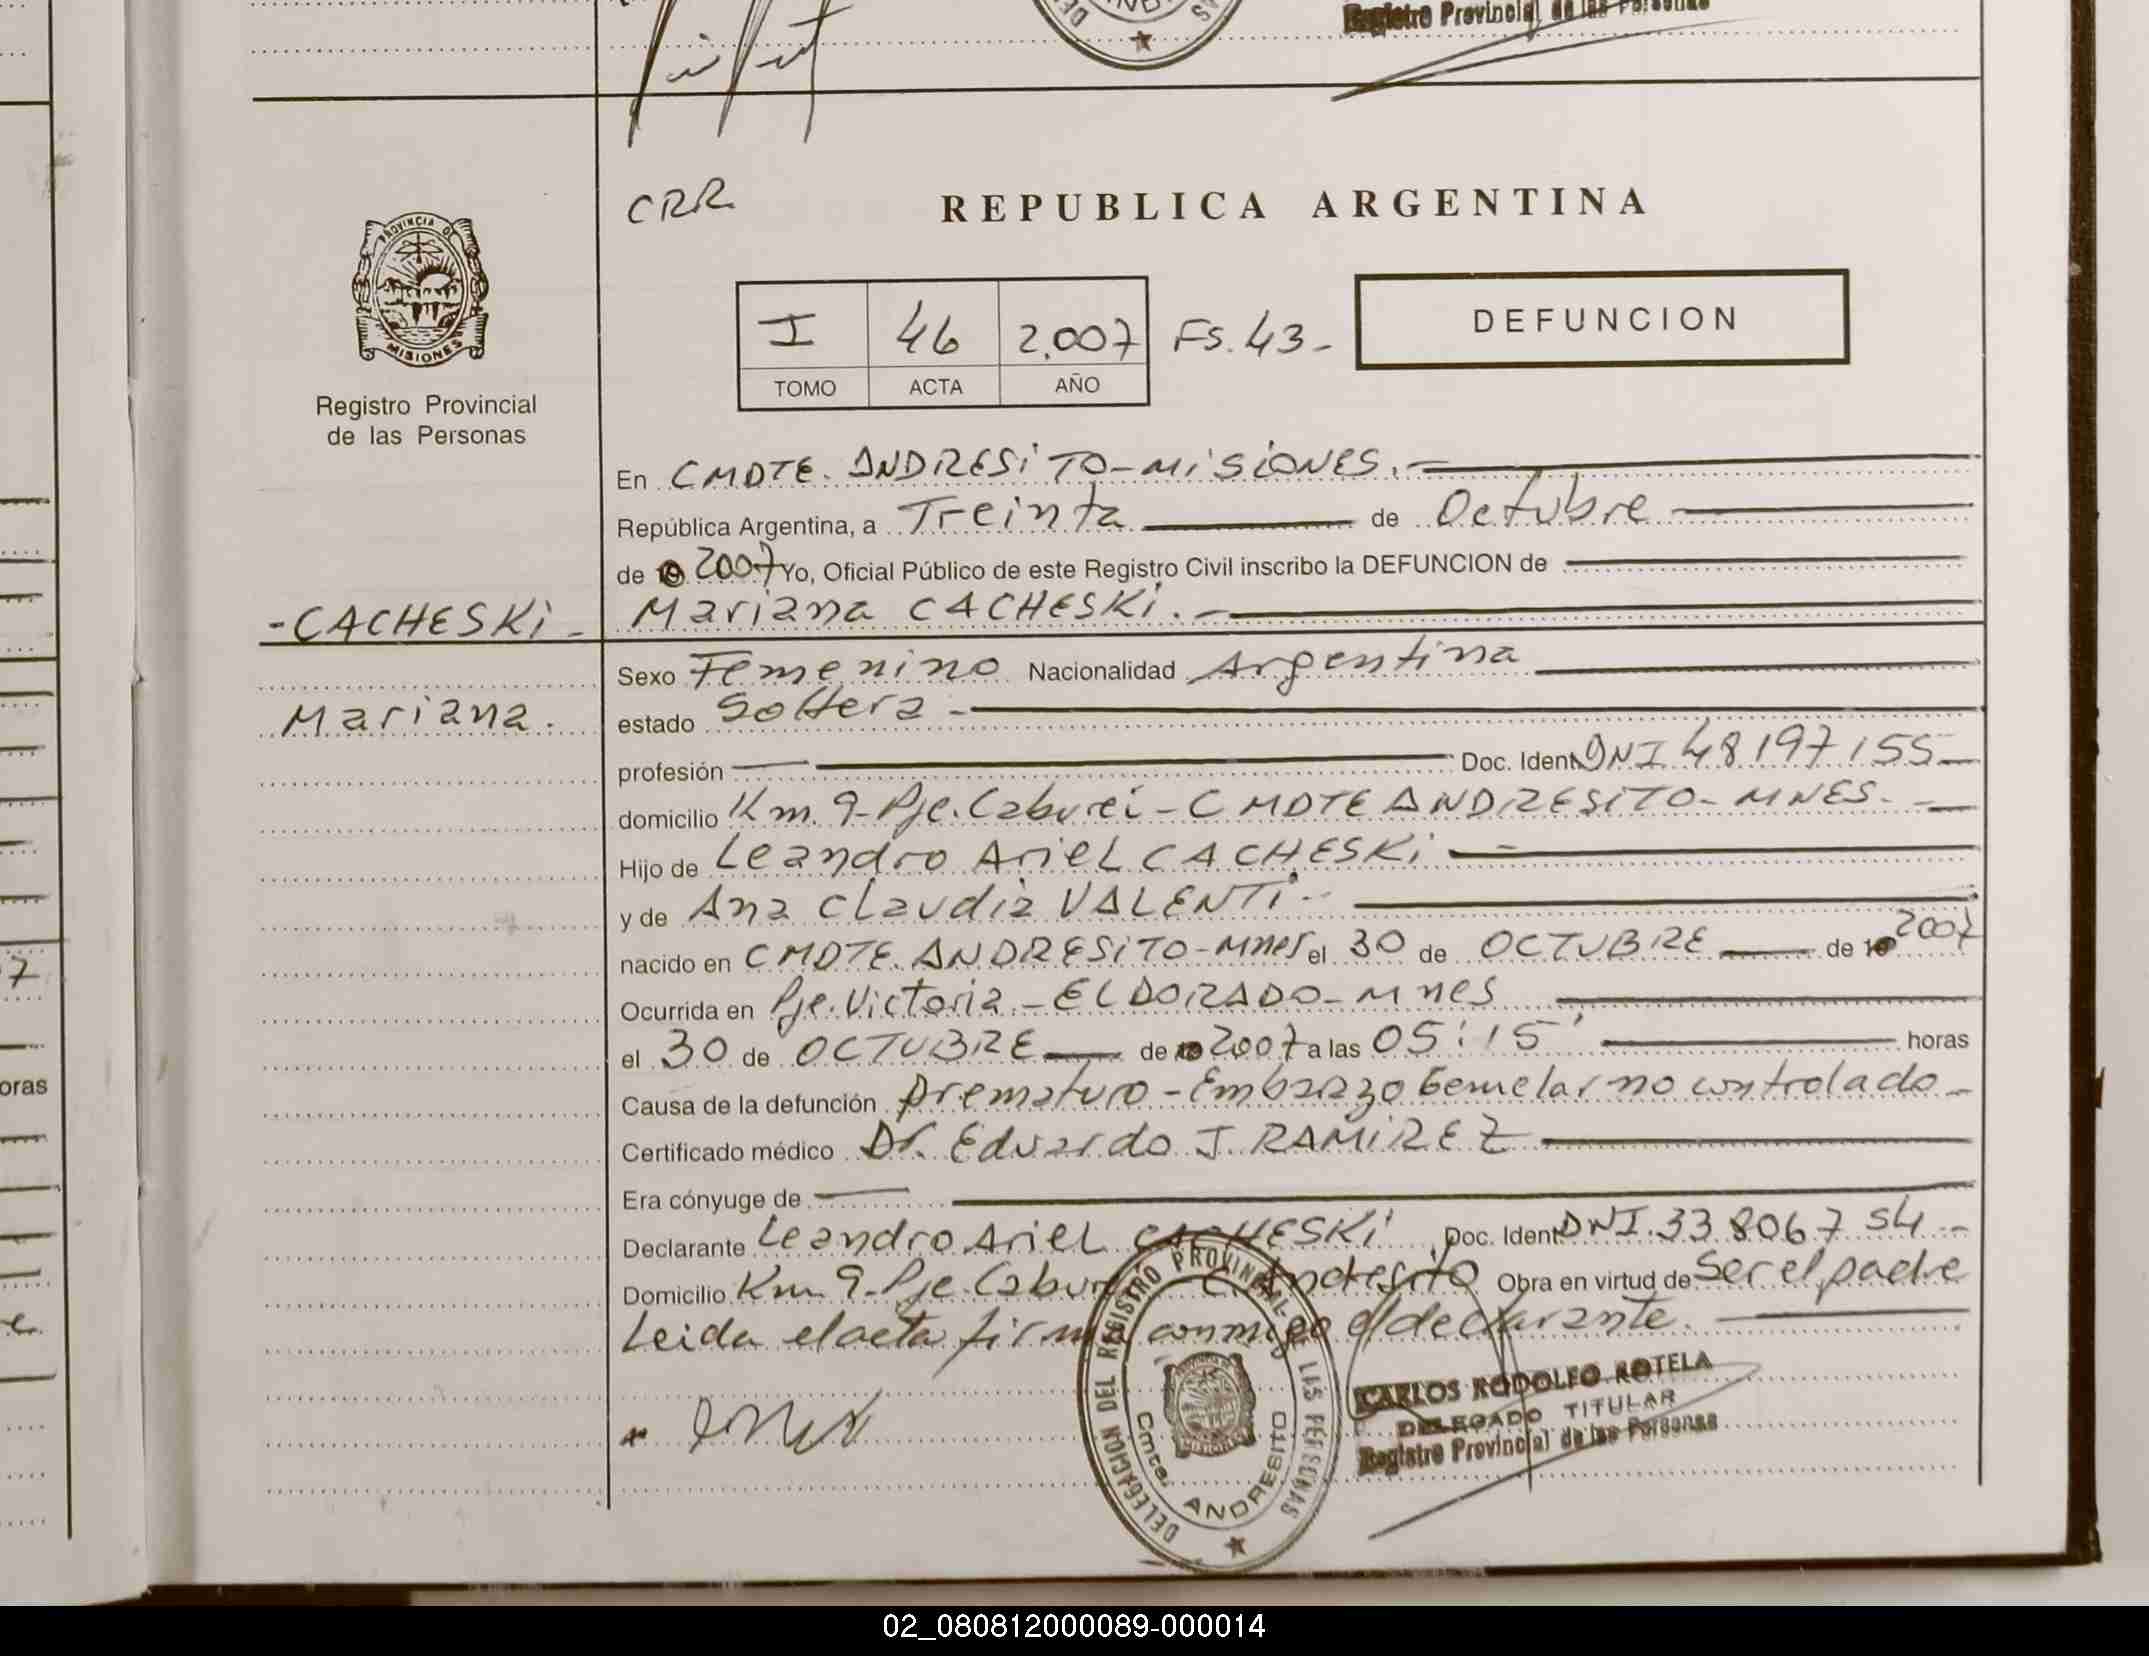 Registro Provincial de las Personas
CRR
REPUBLICA ARGENTINA
PROVINCIA DE
MISIONES
Registro Provincial
de las Personas
I 46 2.007 FS. 43-
TOMO ACTA AÑO
DEFUNCION
En CMDTE. ANDRESITO-MISIONES.-
República Argentina, a Treinta de Octubre
de 2007 Yo, Oficial Público de este Registro Civil inscribo la DEFUNCION de
-CACHESKI-
Mariana CACHESKI.-
Sexo Femenino Nacionalidad Argentina
Mariana.
estado Soltera-
profesión Doc. Ident DNI 48197155-
domicilio Km. 9-Pje. Caburei-CMDTE ANDRESITO-MNES.-
Hijo de Leandro Ariel CACHESKI-
y de Ana Claudia VALENTI-
nacido en CMDTE. ANDRESITO-Mnes el 30 de OCTUBRE de 2007
Ocurrida en Pje. Victoria-ELDORADO-Mnes
el 30 de OCTUBRE de 2007 a las 05:15' horas
Causa de la defunción prematuro-Embarazo Gemelar no controlado-
Certificado médico Dr. Eduardo J. RAMIREZ
Era cónyuge de
Declarante Leandro Ariel CACHESKI Doc. Ident DNI. 33806754-
Domicilio Km 9-Pje. Cabur C. Andresito Obra en virtud de Ser el padre
Leida el acta firma conmigo el declarante.
DELEGACION DEL REGISTRO PROVINCIAL DE LAS PERSONAS
Cmte. ANDRESITO
CARLOS RODOLFO ROTELA
DELEGADO TITULAR
Registro Provincial de las Personas
02_080812000089-000014